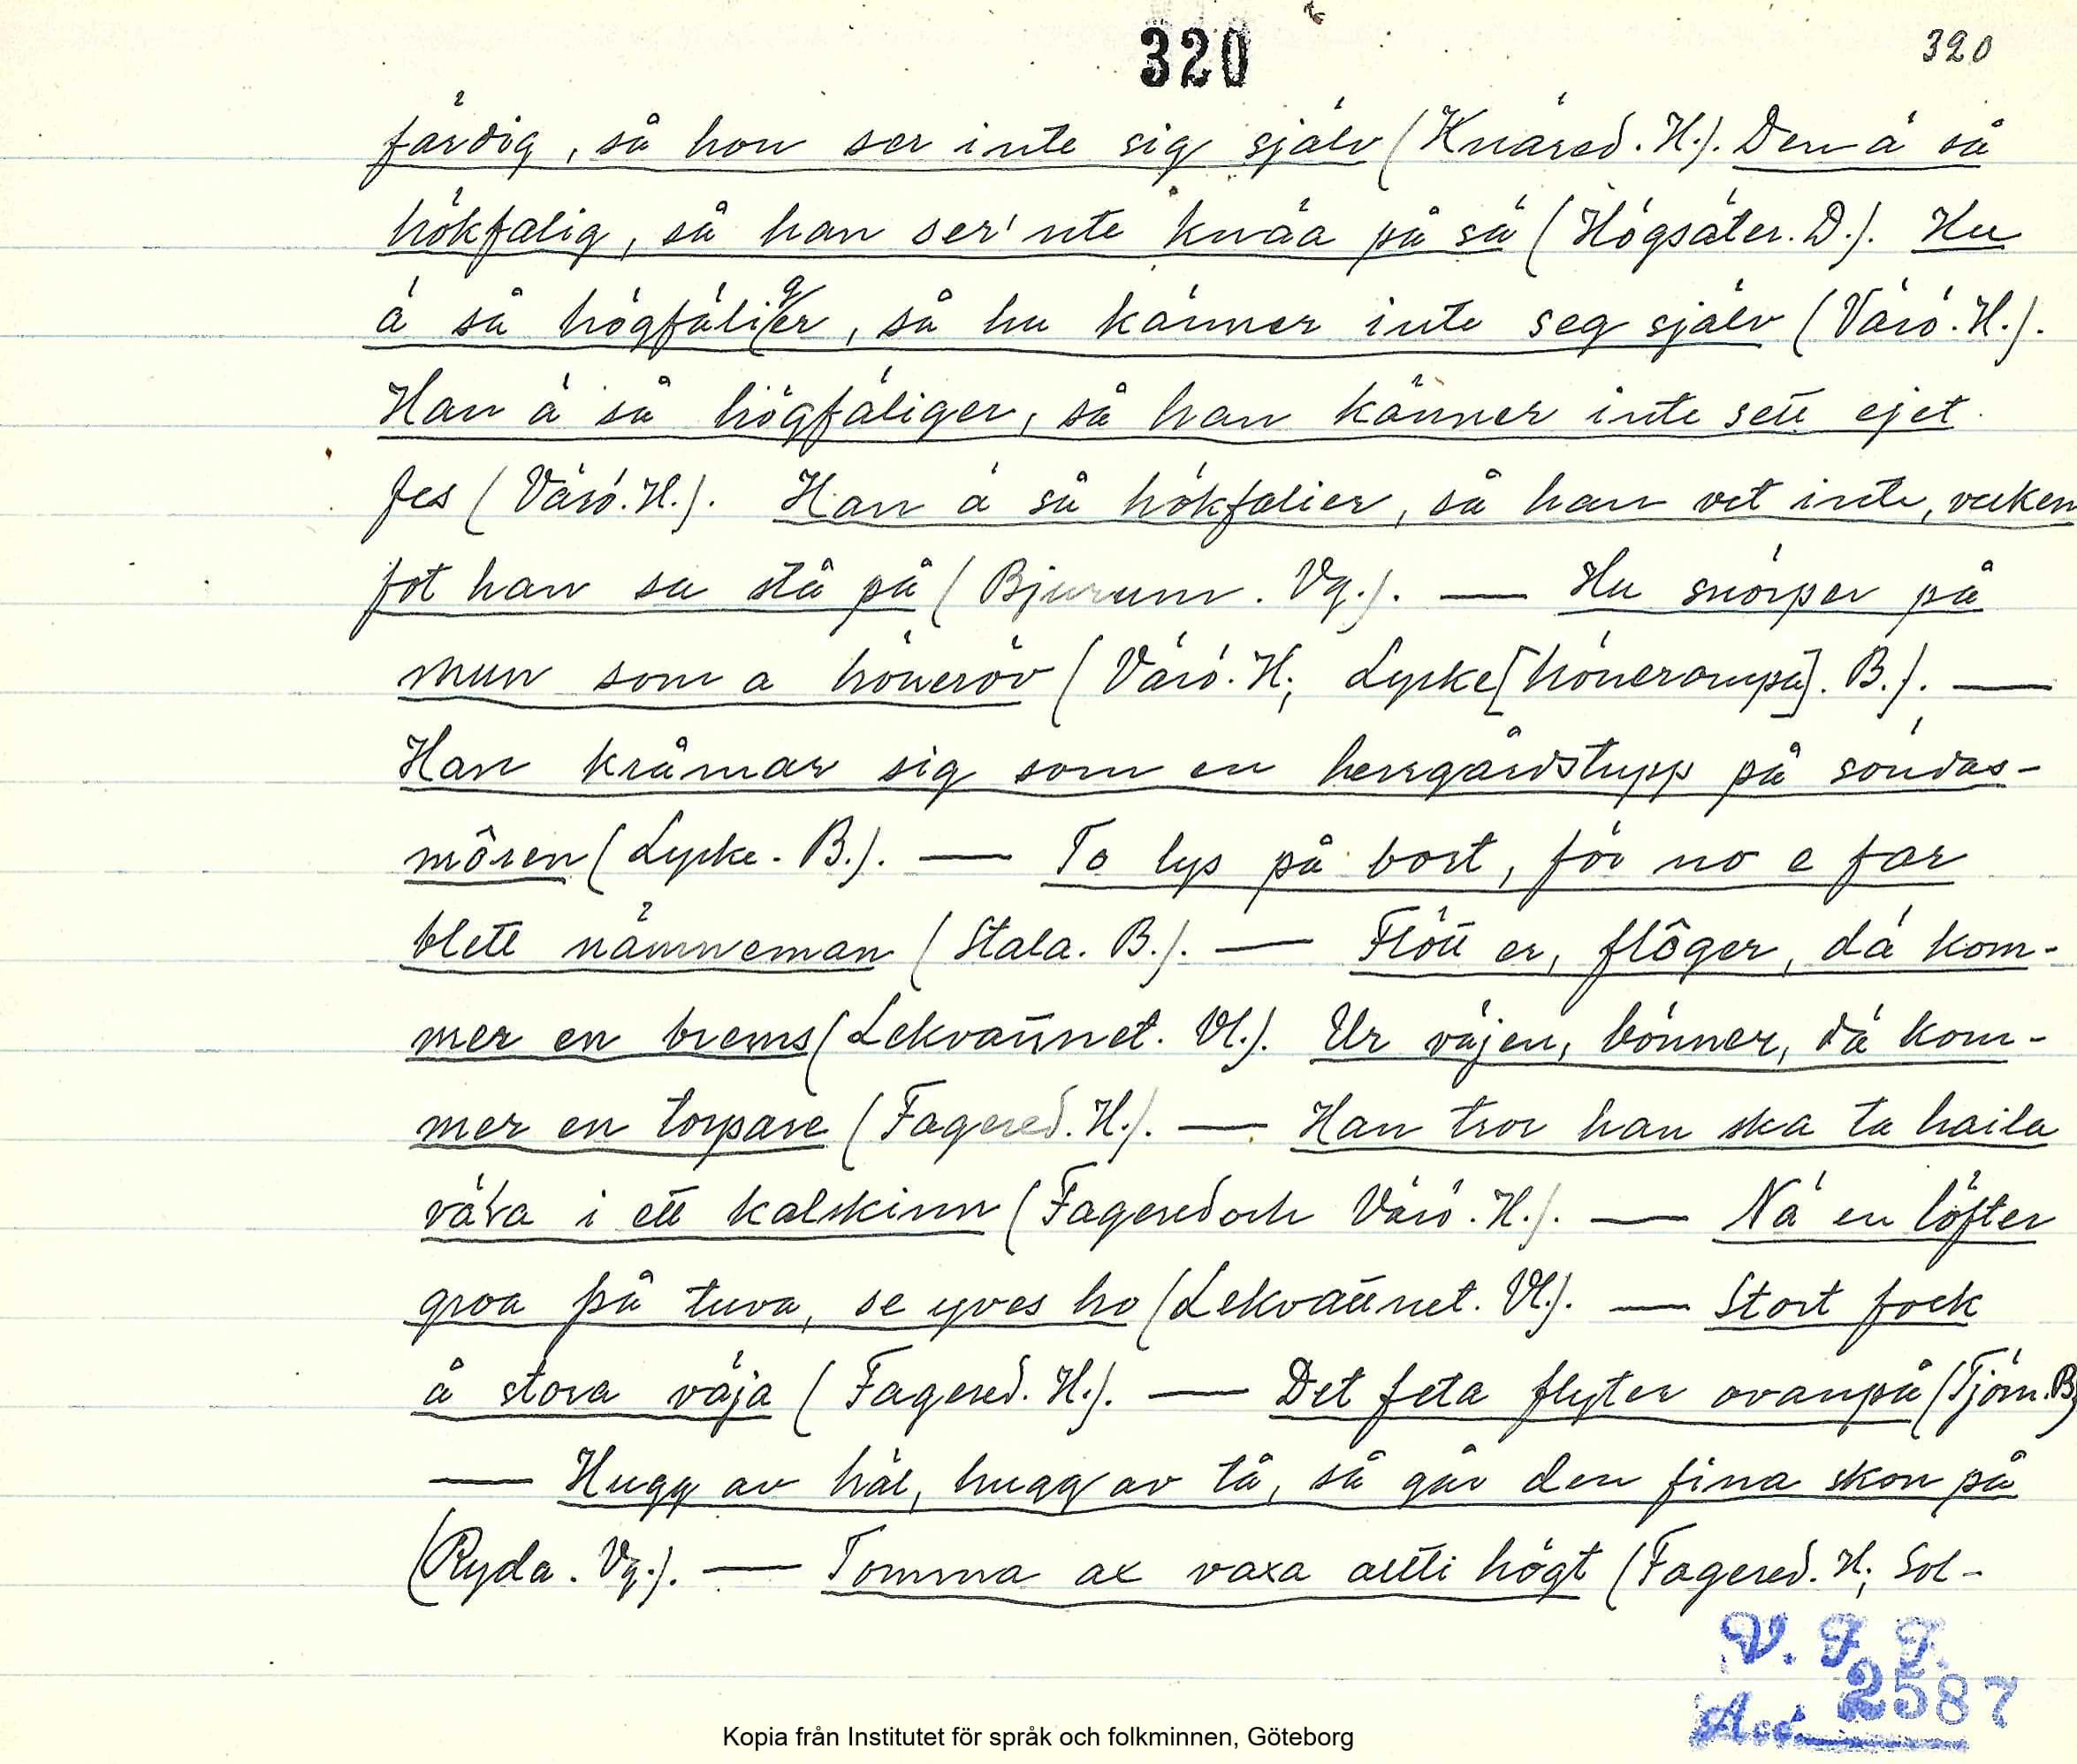 320
320
färdig, så hon ser inte sig själv (Knäred. H.). Den ä så
hökfalig, så han ser' nte knäa på sä (Högsäter. D.). Hu
ä så högfäliger, så hu känner inte seg själv (Värö. H.).
Han ä så högfäliger, så han känner inte sett ejet
fes (Värö. H.). Han ä så hökfalier, så han vet inte, vicken
fot han sa stå på (Bjurum. Vg.). — Hu snörper på
mun som a höneröv (Värö. H; Lycke [hönerompa]. B.). —
Han kråmar sig som en herrgårdstupp på söndas-
môren (Lycke. B.). — To lys på bort, för no e far
blett nämneman (Stala. B.). — Flött er, flôger, dä kom-
mer en brems (Lekvattnet. Vl.). Ur väjen, bönner, dä kom-
mer en torpare (Fagered. H.). — Han tror han ska ta haila
väla i ett kalskinn (Fagered och Värö. H.). — Nä en löfter
groa på tuva, se yves ho (Lekvattnet. Vl.). — Stort fock
å stora väja (Fagered. H.). — Det feta flyter ovanpå (Tjörn. B.)
— Hugg av häl, hugg av tå, så går den fina skon på
(Ryda. Vg.). — Tomma ax vaxa allti högt (Fagered. H; Sol-
V. F. F.
Acc. 2587
Kopia från Institutet för språk och folkminnen, Göteborg